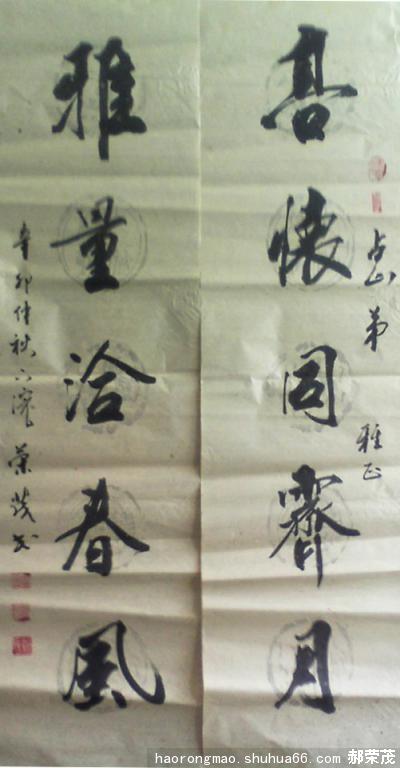 高懷同霽月
占山弟 雅正
雅量洽春風
辛卯仲秋下澣 榮茂书
haorongmao.shuhua66.com 郝荣茂